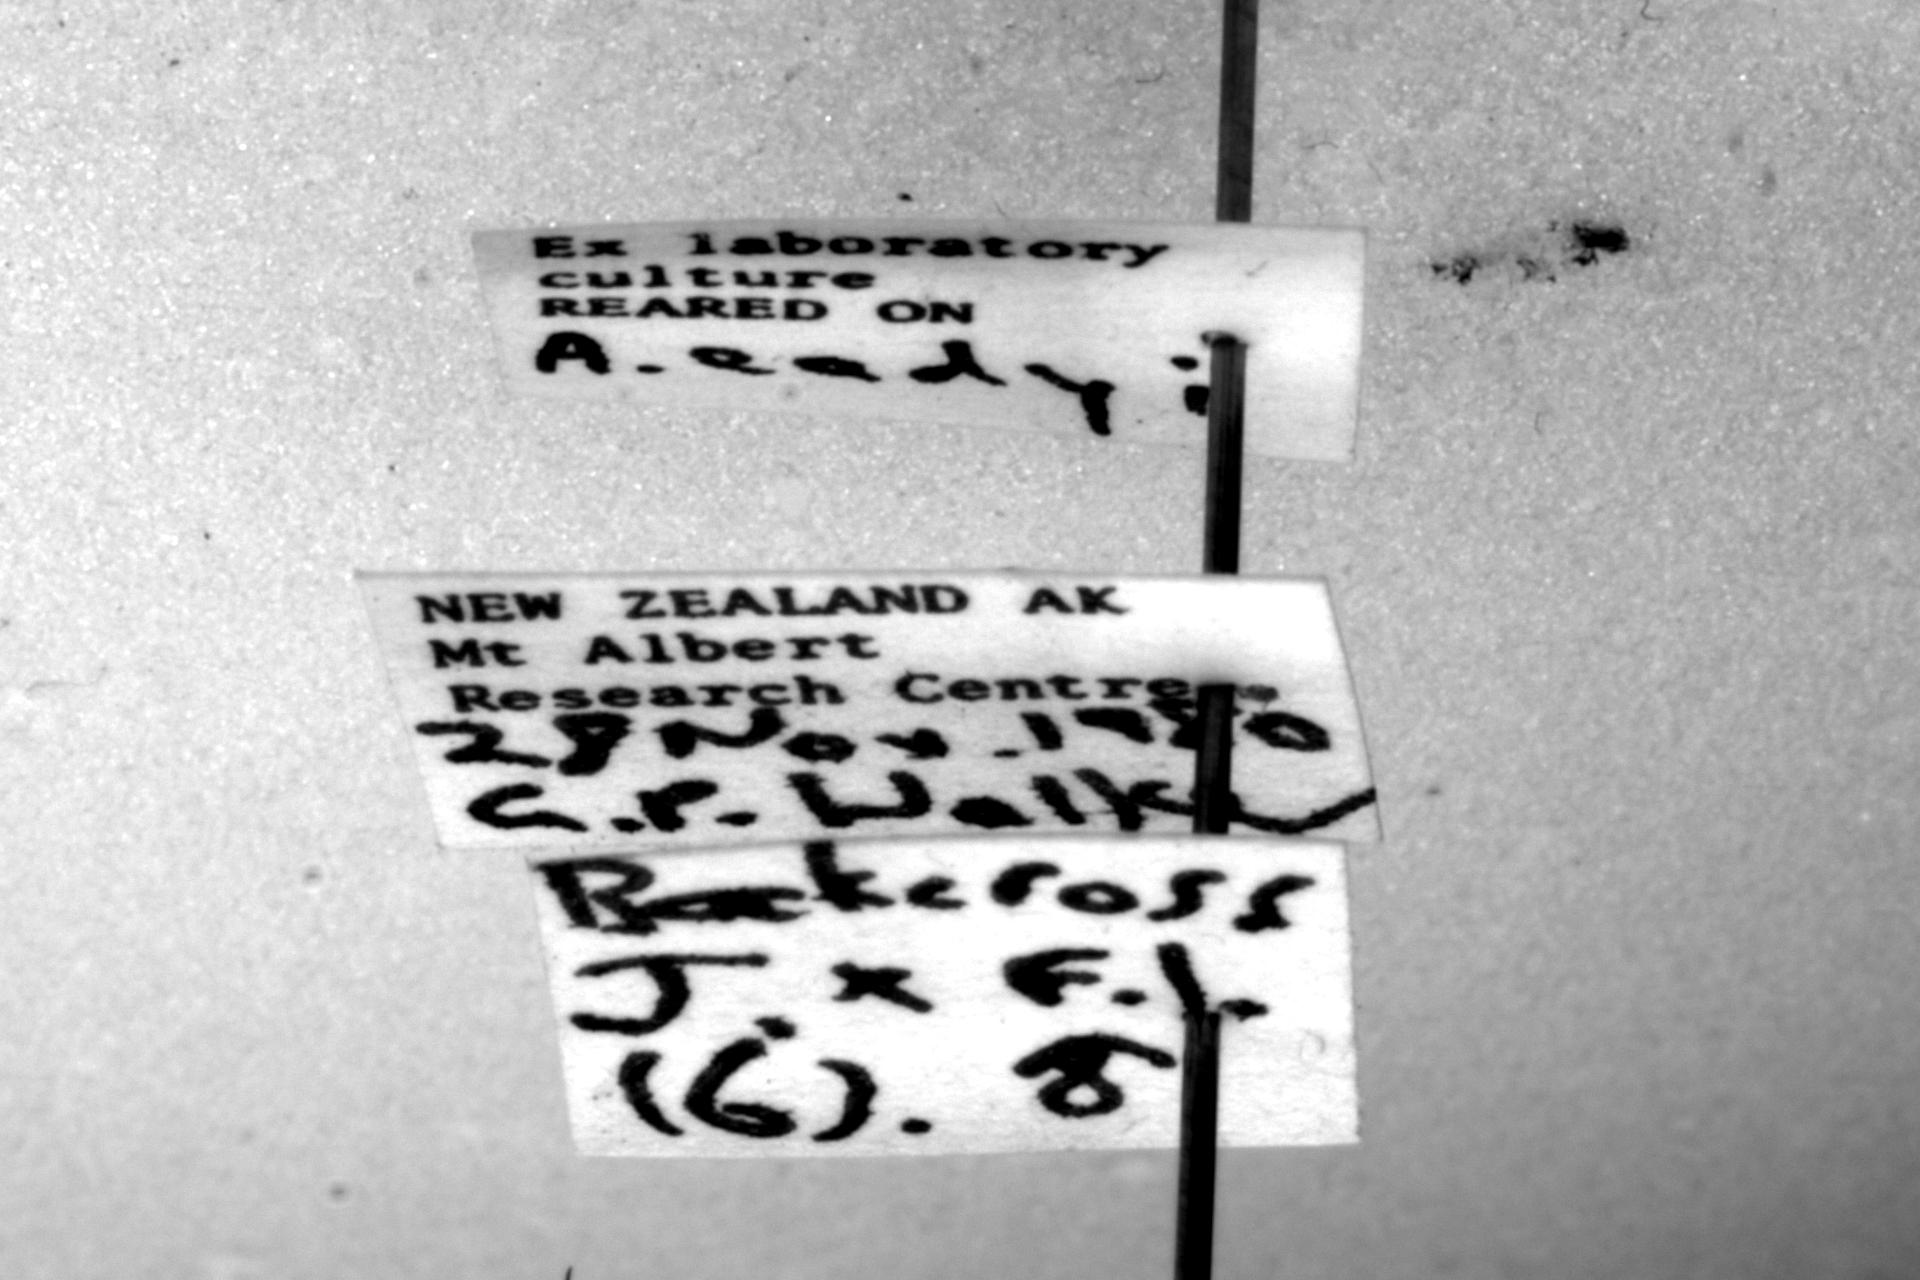 Ex laboratory
culture
REARED ON
A. eadyi
NEW ZEALAND AK
Mt Albert
Research Centre
28 Nov. 1980
G.P. Walker
Backcross
J. x F.1.
(6). ♂